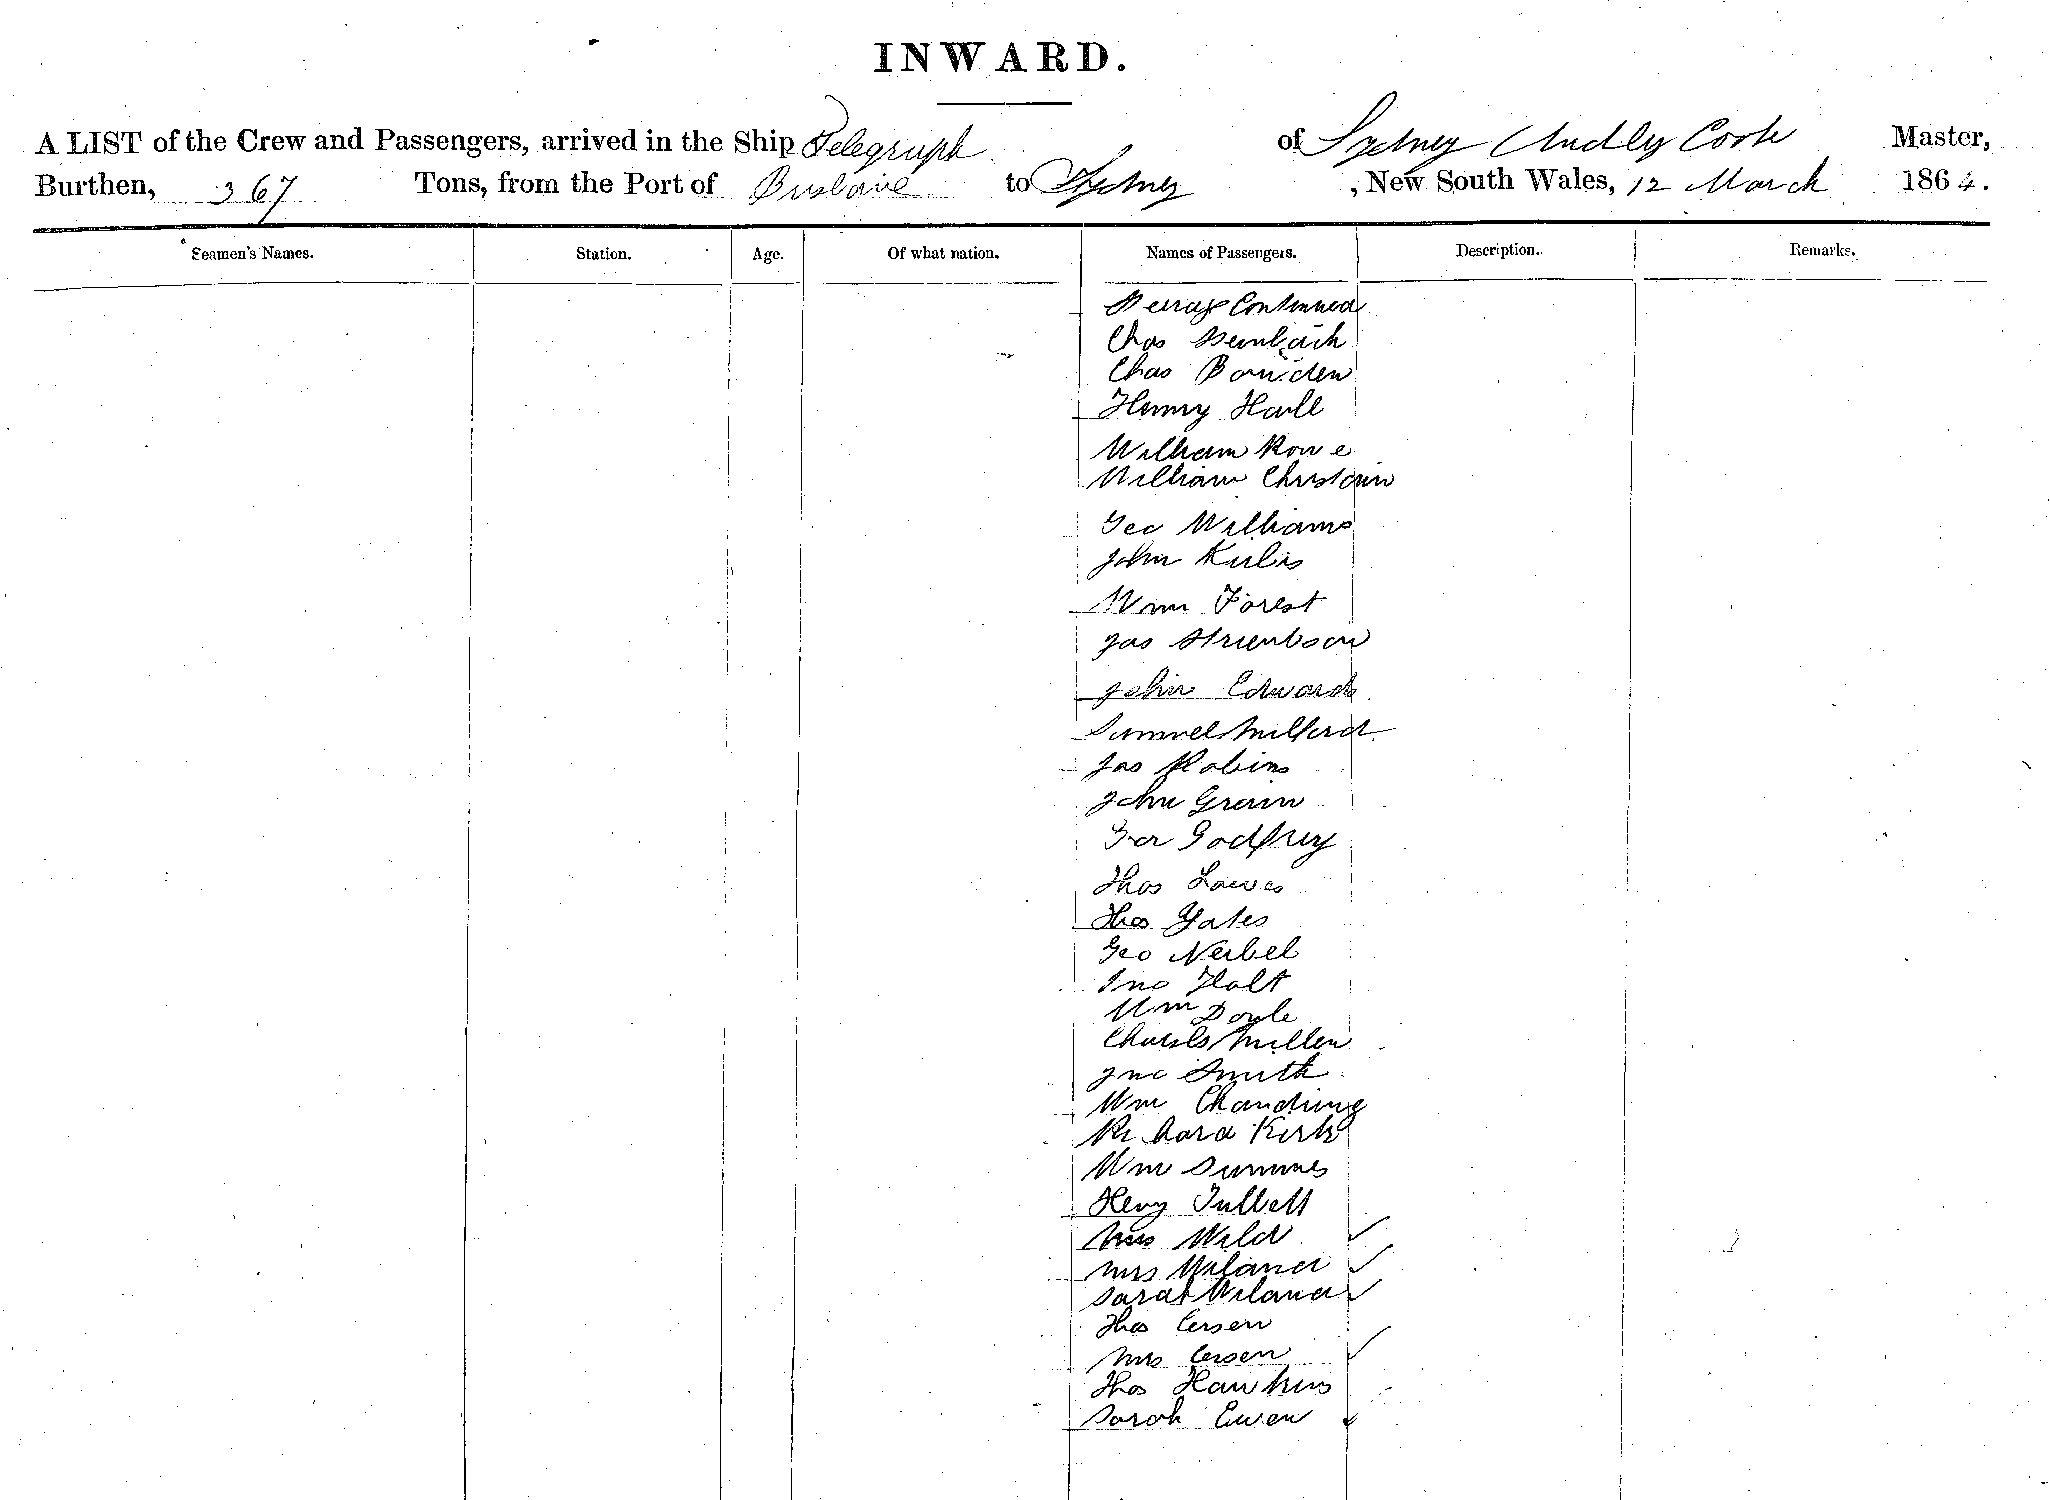 INWARD.
A LIST of the Crew and Passengers, arrived in the Ship Telegraph of Sydney Audley Coote Master,
Burthen, 367 Tons, from the Port of Brisbane to Sydney , New South Wales, 12 March 1864.
Seamen's Names. Station. Age. Of what nation. Names of Passengers. Description. Remarks.
Steerage Continued
Chas
Chas Bowden
Henry Hall
William Rowe
William Christain
Geo Williams
John
Wm Forest
Jas
John Edwards
Samuel Millard
Jas Robins
John Grain
Geo Godfrey
Thos Lawes
Thos Yates
Geo Neibel
Jno Holt
Wm Doyle
Charls Millen
Jno Smith
Wm Chandring
Richard Kirk
Wm Summes
Heny Tullett
Mrs Wild
Mrs Wiland
Sarah Wiland
Thos
Mrs
Thos Hawkins
Sarah Ewen